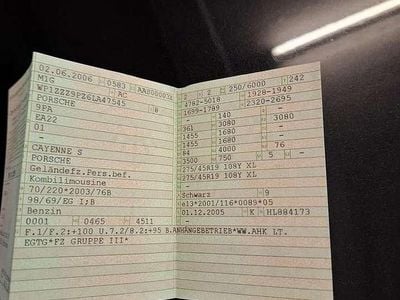 02.06.2006 0583 AAS00003X
M1G AC
WP1ZZZ9PZ6LA47545 8
PORSCHE
9PA
EA22
01
-
CAYENNE S
PORSCHE
Geländefz.Pers.bef.
Kombilimousine
70/220*2003/76B
98/69/EG I;B
Benzin
0001 0465 4511
2 2 250/6000 242
4782-5018 1928-1949
1699-1789 2320-2695
- 140 - -
361 3080 3080
1455 3080 -
1455 1680 -
84 4000 76
3500 750 5 -
275/45R19 108Y XL
275/45R19 108Y XL
-
Schwarz 9
e13*2001/116*0089*05
01.12.2005 K HL884173
F.1/F.2:+100 U.7.2/8.2:+95 B.ANHÄNGEBETRIEB*WW.AHK LT.
EGTG*FZ GRUPPE III*